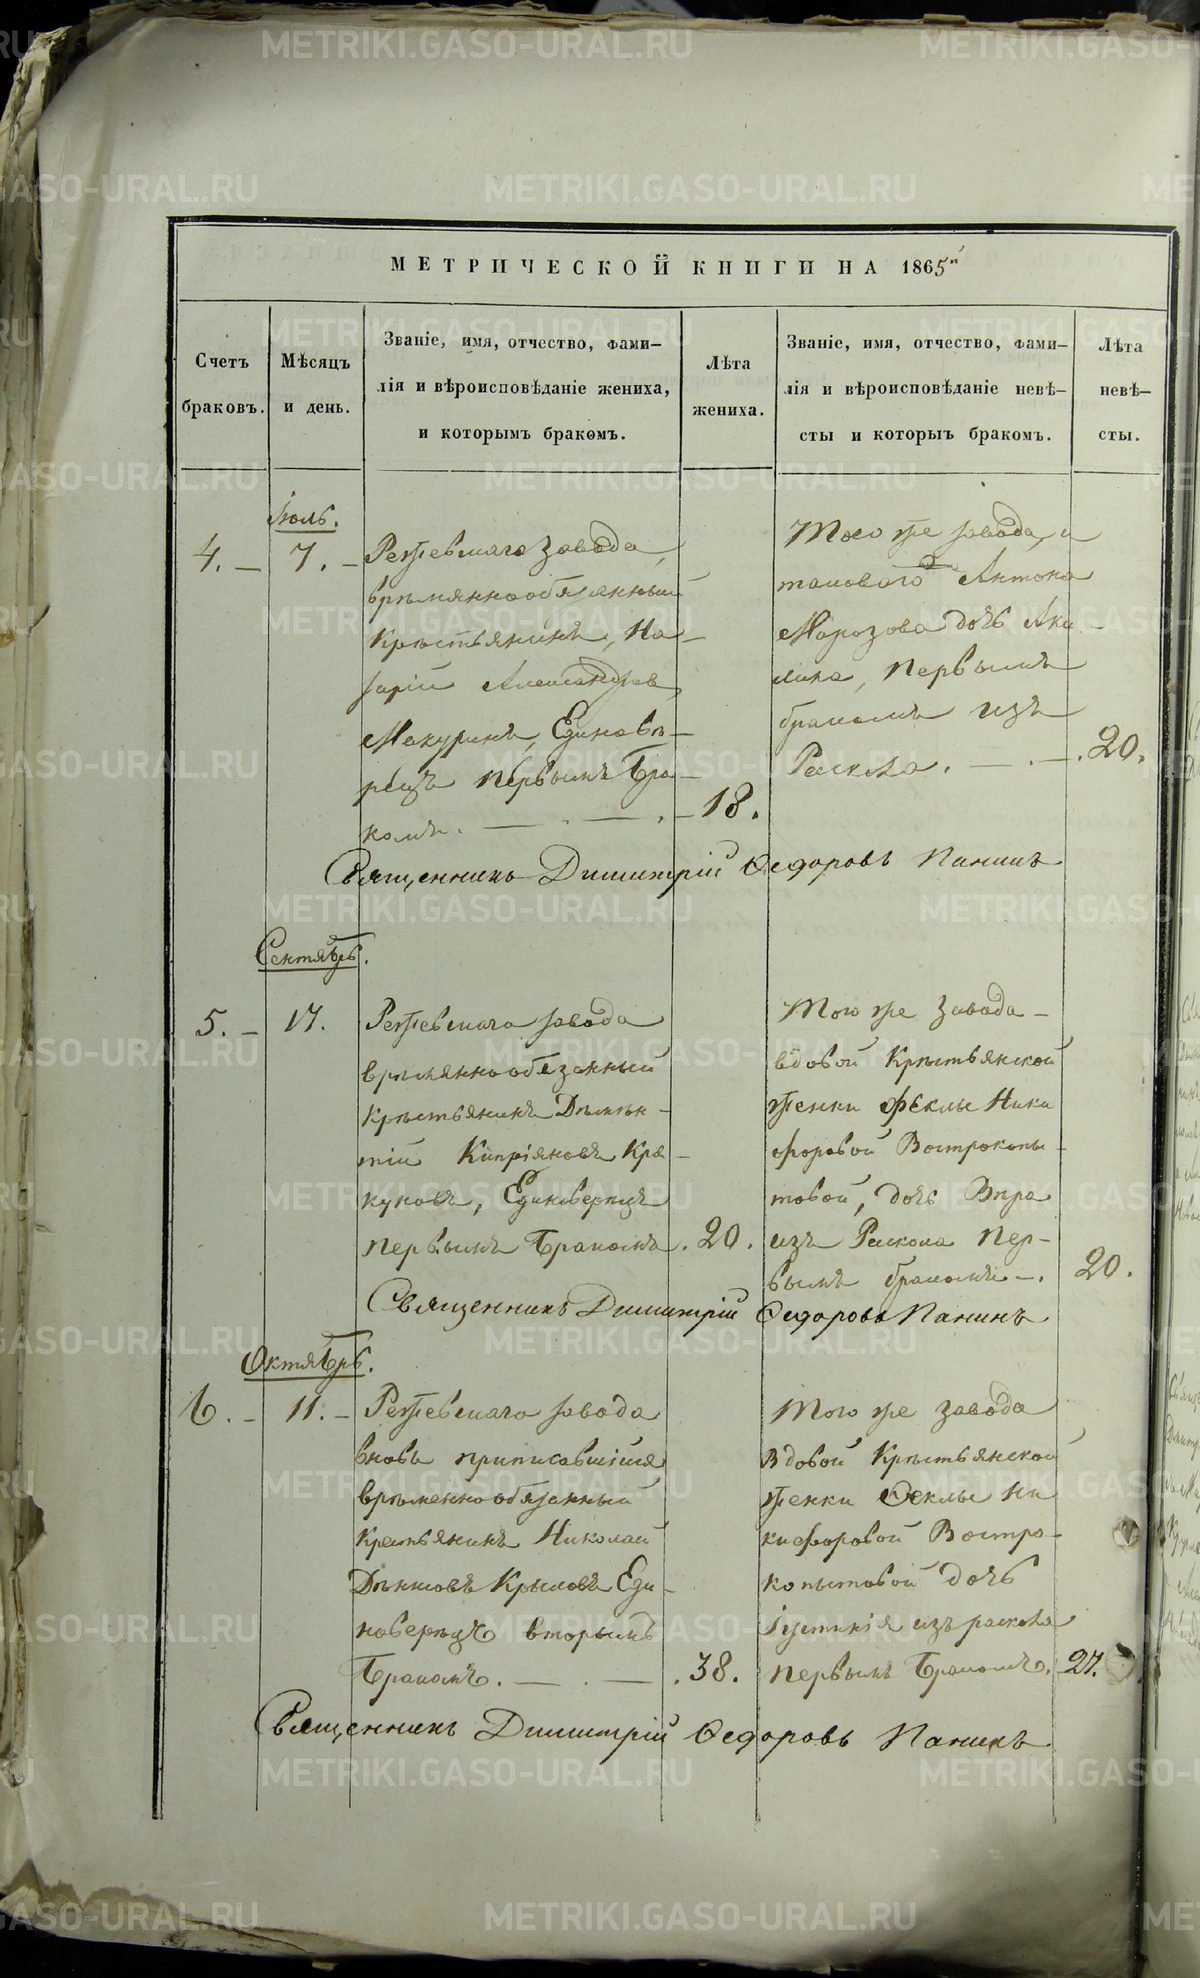 МЕТРИЧЕСКОЙ КНИГИ НА 1865й
Счетъ
браковъ.
Мѣсяцъ
и день.
Званіе, имя, отчество, фами-
лія и вѣроисповѣданіе жениха,
и которымъ бракомъ.
Лѣта
жениха.
Званіе, имя, отчество, фами-
лія и вѣроисповѣданіе невѣ-
сты и которыъ бракомъ.
Лѣта
невѣ-
сты.
Іюль.
4. — 7. —
Режевскаго завода,
врѣмянно обязанный
Крѣстьянинъ, На-
зарій Александров
Мокуринъ, Единовѣ-
рецъ первымъ бра-
комъ. — . — . — 18.
Того же завода, и
таковаго Антона
Морозова дочь Аку-
лина, первымъ
бракомъ изъ
Раскола. — . — . 20.
Священникъ Димитрій Ѳедоровъ Панинъ
Сентябрь.
5. — 17.
Режевскаго завода
врѣмянно обезанный
Крѣстьянинъ Дѣмѣн-
тій Кипріяновъ Кра-
куновъ, Единоверецъ
первымъ бракомъ. 20.
Того же завода —
вдовой Крѣстьянской
женки Феклы Ники
форовой Вострокопы-
товой, дочь Вѣра
изъ Раскола пер-
вымъ бракомъ —. 20.
Священникъ Димитрій Ѳедоровъ Панинъ
Октябрь.
6. — 11. —
Режевскаго завода
вновь приписавшійся
врѣменно обязанный
Крестьянинъ Николай
Дѣнисовъ Крыловъ Еди-
новерецъ вторымъ
бракомъ. — . — . 38.
Того же завода
Вдовой Крѣстьянской
женки Ѳеклы Ни
кифоровой Востро-
копытовой дочь
Іустинія изъ раскола
первымъ бракомъ. 27.
Священникъ Димитрій Ѳедоровъ Панинъ
METRIKI.GASO-URAL.RU